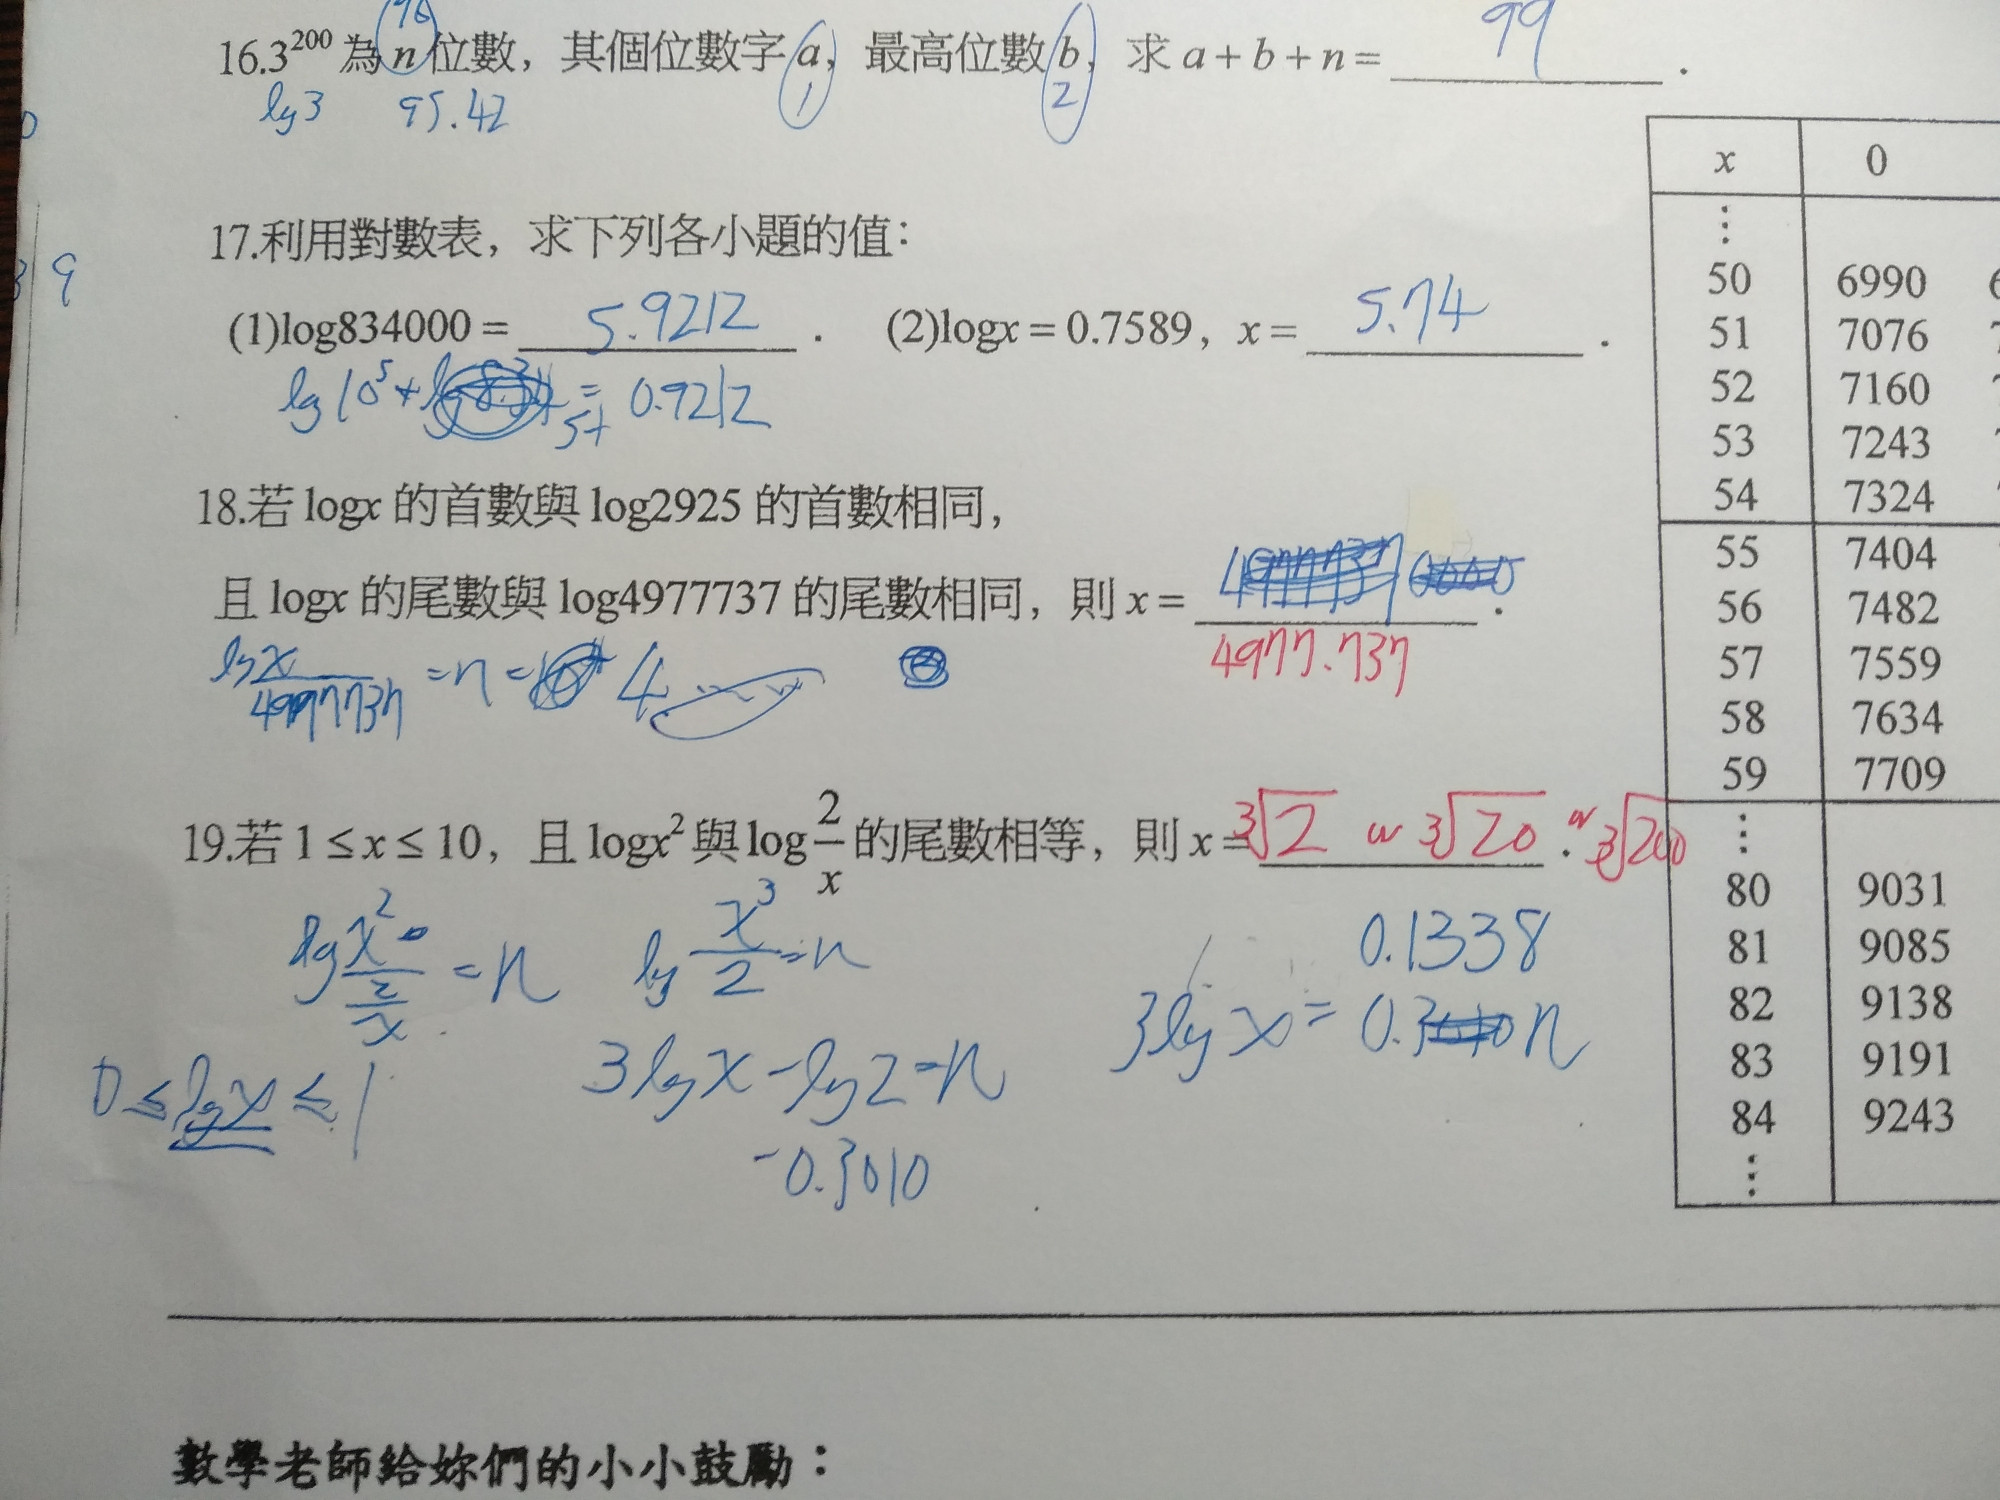 96
16.3²⁰⁰ 為 n 位數，其個位數字 a，最高位數 b，求 a + b + n = 99．
lg3 95.42 1 2
17.利用對數表，求下列各小題的值：
9
(1)log834000 = 5.9212． (2)logx = 0.7589，x = 5.74．
lg10⁵ + 5+ = 0.9212
18.若 logx 的首數與 log2925 的首數相同，
且 logx 的尾數與 log4977737 的尾數相同，則 x = ．
4977.737
lg x/4977737 = n = 4
19.若 1 ≤ x ≤ 10，且 logx² 與 log 2/x 的尾數相等，則 x = ³√2 or ³√20．or ³√200
lg x²/(2/x) = n lg x³/2 = n 0.1338
3lgx = 0.3 n
0 ≤ lgx ≤ 1 3lgx - lg2 = n
-0.3010
x 0
⋮
50 6990
51 7076
52 7160
53 7243
54 7324
55 7404
56 7482
57 7559
58 7634
59 7709
⋮
80 9031
81 9085
82 9138
83 9191
84 9243
⋮
數學老師給妳們的小小鼓勵：